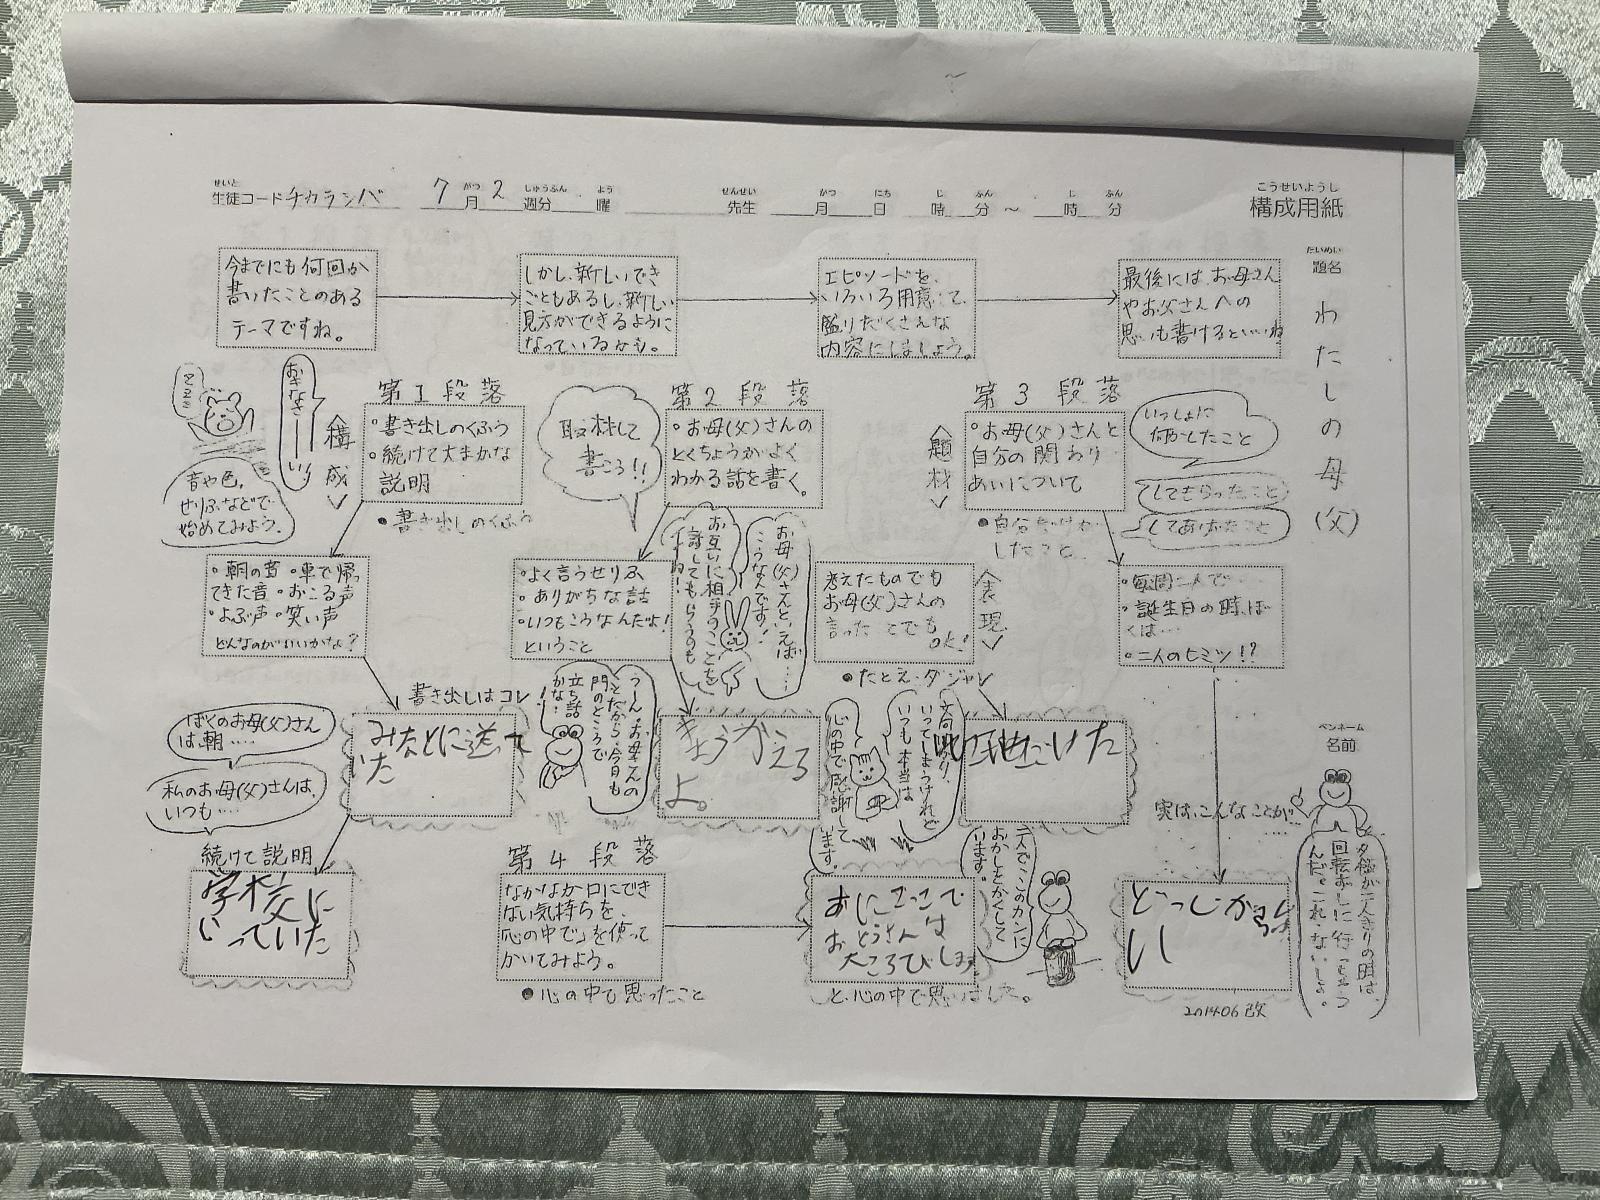 せいと がつ しゅうぶん よう せんせい がつ にち じ ふん じ ふん
生徒コードチカラシバ 7月2週分 曜 先生 月 日 時 分 ～ 時 分
こうせいようし
構成用紙
だいめい
題名
わたしの母(父)
今までにも何回か
書いたことのある
テーマですね。
しかし、新しいでき
ごともあるし、新しい
見方ができるように
なっているかも。
エピソードを、
いろいろ用意して、
盛りだくさんな
内容にしましょう。
最後にはお母さん
やお父さんへの
思いも書けるといいね
zzzz
おきなさーーい!
〈構成〉
音や色、
せりふなどで
始めてみよう。
第1段落
・書き出しのくふう
・続けて大まかな
説明
●書き出しのくふう
・朝の音・車で帰っ
てきた音・おこる声
・よぶ声・笑い声
どんなのがいいかな?
書き出しはコレ
みなとに送って
いた
ぼくのお母(父)さん
は、朝……
私のお母(父)さんは、
いつも……
続けて説明
学校に
いっていた
取材して
書こう!!
第2段落
・お母(父)さんの
とくちょうがよく
わかる話を書く。
・よく言うせりふ
・ありがちな話
・いつもこうなんだよ!
ということ
お母(父)さんといえば……
こうなんです!
お互いに相手のことを
話してもらうのも
いいね!
うーん、お母さんの
ことだから、今日も
門のところで
立ち話
かな!
きょうかえる
よ。
〈題材〉
第3段落
・お母(父)さんと
自分の関わり
あいについて
いっしょに
何かしたこと
してもらったこと
してあげたこと
したこと
・毎週二人で…
・誕生日の時、ぼ
くは…
・二人のヒミツ!?
考えたものでも
お母(父)さんの
言ったことでも
OK!
〈表現〉
●たとえ・ダジャレ
実は、こんなことが
夕飯が二人きりの時は、
回転ずしに行っちゃう
んだ。これ、ないしょ。
どっじがえら
い
二人でこのカンに
おかしをかくして
います。
第4段落
なかなか口にでき
ない気持ちを、
「心の中で」を使って
かいてみよう。
●心の中で思ったこと
いつも文句ばかり
いってしまうけれど
本当は
心の中で感謝して
います。
おにごっこで
おとうさんは
大ころびします
と、心の中で思いました。
ペンネーム
名前
201406改